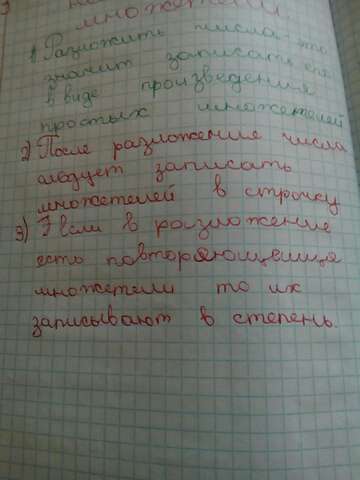 множетели.
1) Разложить числа-это
значит записать его
в виде произведения
простых множетелей
2) После разложение числа
следует записать
множетелей в строчку
3) Если в разложение
есть повторяющиеция
множетели то их
записывают в степень.